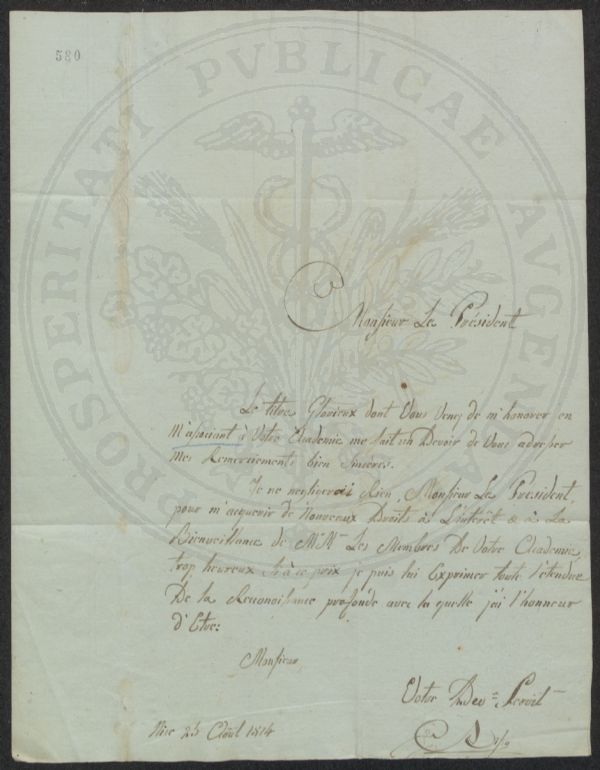 580
PROSPERITATI PVBLICAE AVGENDAE
Monsieur Le Président
Le titre Glorieux dont Vous Venez de m'honorer en
M'associant à Votre Academie me fait un Devoir de Vous adresser
Mes Remerciements bien Sincères.
Je ne négligerai Rien, Monsieur Le Président,
pour m'acquerir de Nouveaux Droits à L'intérêt & à La
Bienveillance de MM. Les Membres De Votre Academie,
trop heureux Si à ce prix je puis lui Exprimer toute l'étendue
De la Reconnaissance profonde avec la quelle j'ai l'honneur
d'Etre:
Monsieur,
Votre
Nice 25 Août 1814